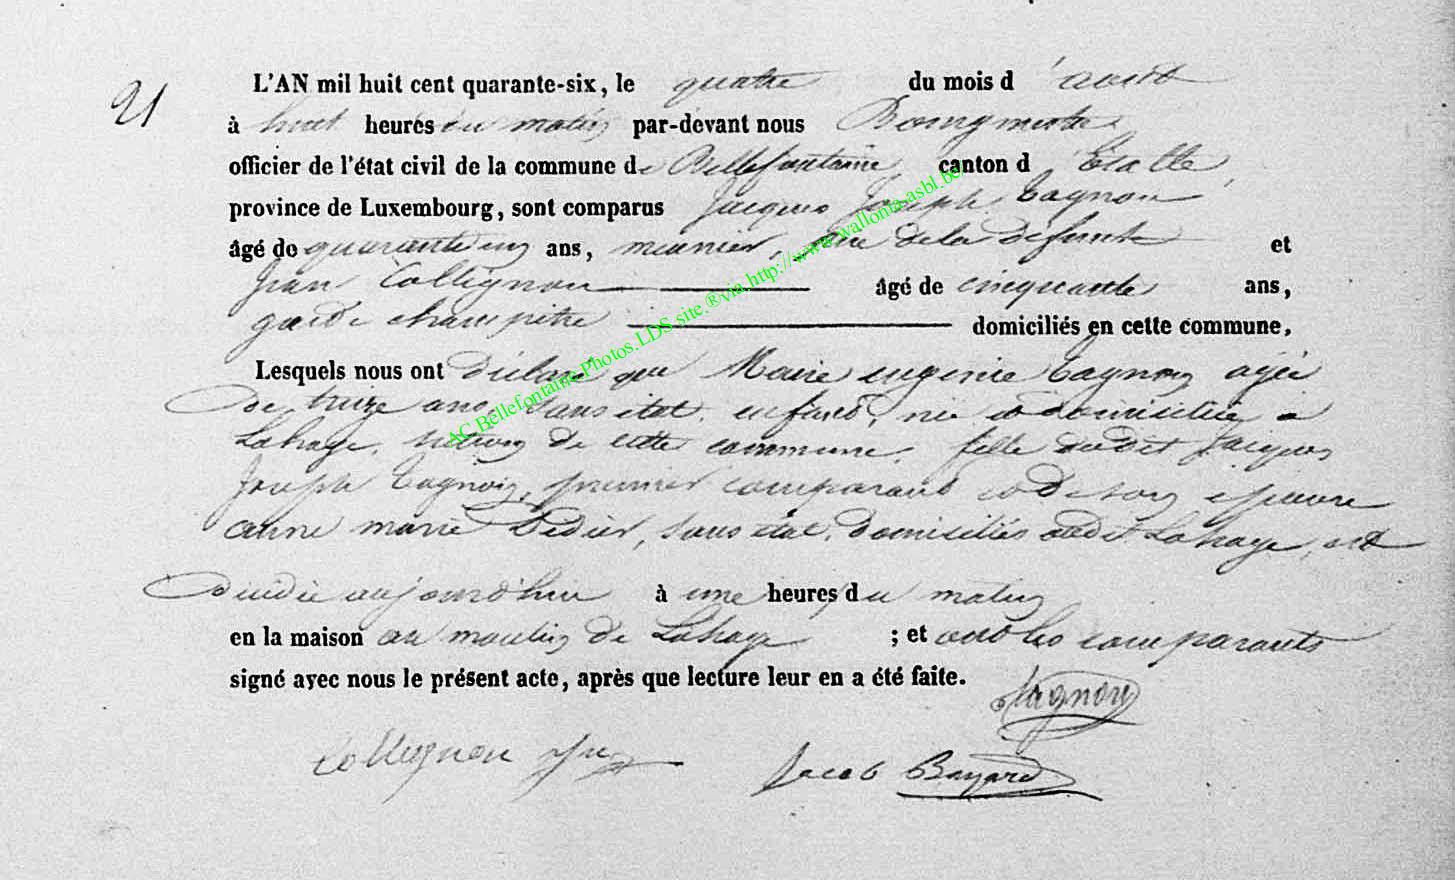 21
L'AN mil huit cent quarante-six, le quatre du mois d'août
à huit heures du matin par-devant nous Bourgmestre
officier de l'état civil de la commune de Bellefontaine, canton d'Etalle,
province de Luxembourg, sont comparus Jacques Joseph Tagnon
âgé de quarante un ans, meunier, père de la défunte et
Jean Collignon âgé de cinquante ans,
garde champêtre domiciliés en cette commune,
Lesquels nous ont déclaré que Marie eugenie Tagnon agée
de treize ans, sans état, enfant, née et domiciliée à
Lahage, section de cette commune, fille dudit Jacques
Joseph Tagnon, premier comparant et de son epouse
anne marie Didier, sans état, domiciliés audit Lahage, est
décédée aujourd'hui à une heures du matin
en la maison au moulin de Lahage ; et ont les comparants
signé avec nous le présent acte, après que lecture leur en a été faite.
Tagnon
Collignon Jn
Jacob Bayard
AC.Bellefontaine.Photos.LDS.site.®via.http://www.wallonia-asbl.be/